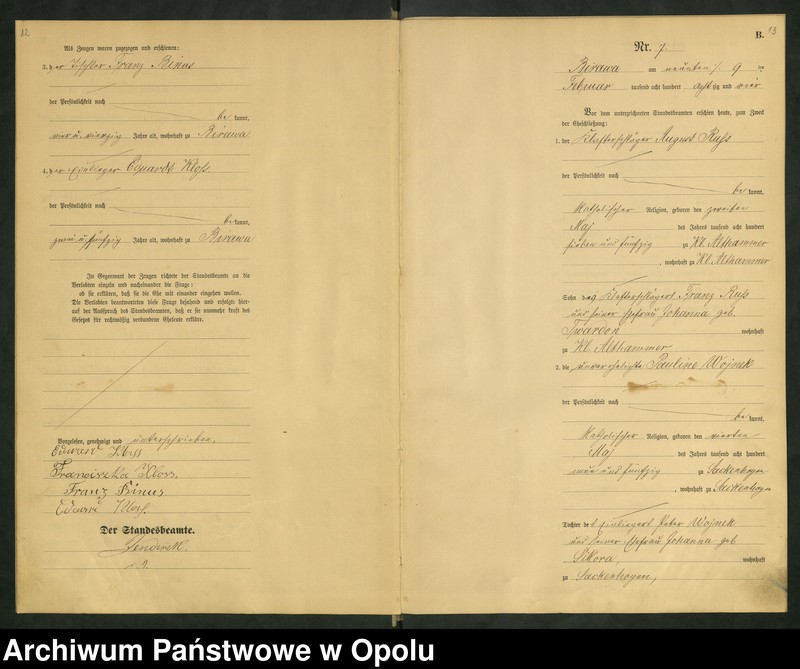 12
Als Zeugen waren zugezogen und erschienen:
3. der Tischler Franz Binus
der Persönlichkeit nach
be kannt,
vier u. vierzig Jahre alt, wohnhaft zu Birawa
4. der Einlieger Eduardt Kloss.
der Persönlichkeit nach
be kannt,
zwei u. fünfzig Jahre alt, wohnhaft zu Birawa
In Gegenwart der Zeugen richtete der Standesbeamte an die
Verlobten einzeln und nacheinander die Frage:
ob sie erklären, daß sie die Ehe mit einander eingehen wollen.
Die Verlobten beantworteten diese Frage bejahend und erfolgte hier-
auf der Ausspruch des Standesbeamten, daß er sie nunmehr kraft des
Gesetzes für rechtmäßig verbundene Eheleute erkläre.
Vorgelesen, genehmigt und unterschrieben.
Eduard Kloss
Franciszka Kloss
Franz Binus
Eduard Kloss.
Der Standesbeamte.
B.
13
Nr. 7.
Birawa am neunten /. 9 ten
Februar tausend acht hundert achtzig und vier
Vor dem unterzeichneten Standesbeamten erschien heute, zum Zweck
der Eheschließung:
1. der Klafterschläger August Russ
der Persönlichkeit nach
be kannt,
katholischer Religion, geboren den zweiten
Maj des Jahres tausend acht hundert
sieben und fünfzig zu Kl. Althammer
, wohnhaft zu Kl. Althammer
Sohn des Klafterschlägers Franz Russ
und seiner Ehefrau Johanna geb.
Twardon wohnhaft
zu Kl. Althammer
2. die unverehelichte Pauline Wojnek
der Persönlichkeit nach
be kannt,
katholischer Religion, geboren den vierten
Maj des Jahres tausend acht hundert
neun und fünfzig zu Sackenhoym
, wohnhaft zu Sackenhoym
Tochter des Einliegers Peter Wojnek
und seiner Ehefrau Johanna geb
Sikora, wohnhaft
zu Sackenhoym,
Archiwum Państwowe w Opolu